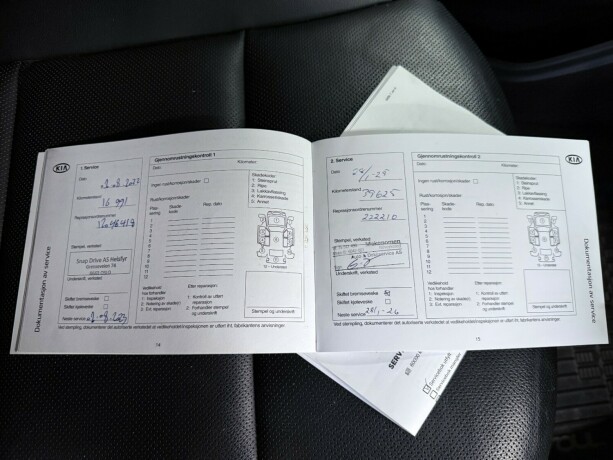 KIA
Dokumentasjon av service
1. Service
Dato:
Kilometerstand
16 991
Reparasjonsnummer
Stempel, verksted:
Snap Drive AS Helsfyr
Underskrift, verksted:
Skiftet bremsevæske
Skiftet kjølevæske
Neste service
Gjennomrustningskontroll 1
Dato:
Kilometer:
Ingen rustkorrosjonsskader
Rustkorrosjonsskader
Plas-
sering
Skade-
kode
Rep. dato:
1
2
3
4
5
6
7
8
9
10
11
12
Skadekoder
1 Steinsprut
2 Ripe
3 Lakkavflassing
4 Karosseriskade
5 Annet
12 - Understell
Vedlikehold
hos forhandler
1 : Inspeksjon
2 : Notering av skade(r)
3 : Evt. reparasjon
Etter reparasjon
1 : Kontroll av utført
reparasjon
2 : Forhandler stempel
og underskrift
Stempel og underskrift
Ved stempling, dokumenterer det autoriserte verkstedet at vedlikeholdet/inspeksjonen er utført iht. fabrikantens anvisninger.
14
2. Service
Dato:
Kilometerstand
39625
Reparasjonsnummer
222210
Stempel, verksted:
Underskrift, verksted:
Skiftet bremsevæske
Skiftet kjølevæske
Neste service
28/1-26
Gjennomrustningskontroll 2
Dato:
Kilometer:
Ingen rustkorrosjonsskader
Rustkorrosjonsskader
Plas-
sering
Skade-
kode
Rep. dato:
1
2
3
4
5
6
7
8
9
10
11
12
Skadekoder
1 Steinsprut
2 Ripe
3 Lakkavflassing
4 Karosseriskade
5 Annet
12 - Understell
Vedlikehold
hos forhandler
1 : Inspeksjon
2 : Notering av skade(r)
3 : Evt. reparasjon
Etter reparasjon
1 : Kontroll av utført
reparasjon
2 : Forhandler stempel
og underskrift
Stempel og underskrift
Ved stempling, dokumenterer det autoriserte verkstedet at vedlikeholdet/inspeksjonen er utført iht. fabrikantens anvisninger.
15
KIA
Dokumentasjon av service
SERV